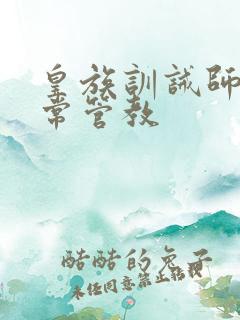 皇族訓誡師
常管教
酷酷的兔子
未经同意禁止转载